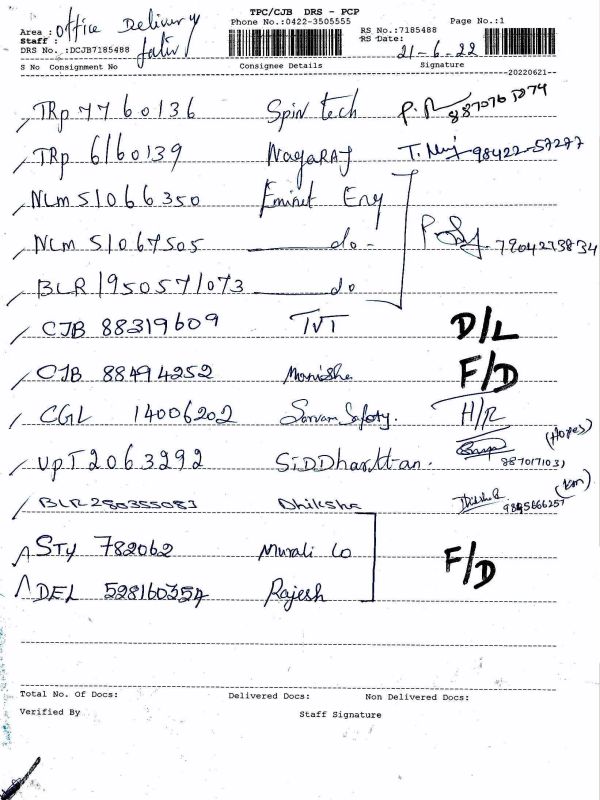 TPC/CJB DRS - PCP
Area : Office Delivery Phone No.:0422-3505555 RS No.:7185488 Page No.:1
Staff : RS Date: 21-6-22
DRS No. :DCJB7185488
S No Consignment No Consignee Details Signature
--20220621--
TRP 77 60136 Spin tech
TRP 6160139 NAGARAJ 98422-57277
NLM 51066350 Eminet Eng
NLM 51067505 do - 7904273834
BLR 1950571073 do
CJB 88319609 TVT D/L
CJB 88494252 Manisha F/D
CGL 14006202 Sarvam Safety. H/R
UPT 2063292 SiDDharttan. (Hopes)
8870171031
BLR 280355083 Dhiksha (km)
9845666257
STY 782062 Murali Co F/D
DEL 528160354 Rajesh
Total No. Of Docs: Delivered Docs: Non Delivered Docs:
Verified By Staff Signature